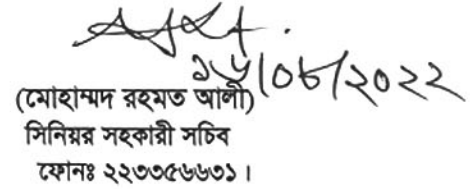 ১৬/০৮/২০২২
(মোহাম্মদ রহমত আলী)
সিনিয়র সহকারী সচিব
ফোনঃ ২২৩৩৫৬৬৩১।